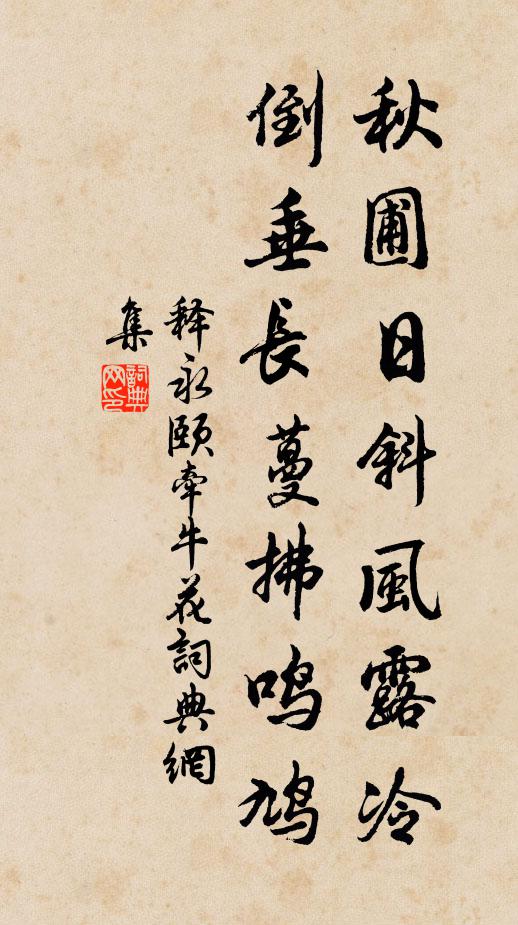 秋圃日斜風露冷
倒垂長蔓拂鳴鳩
释永頤牽牛花詞典網
集
詞典網印